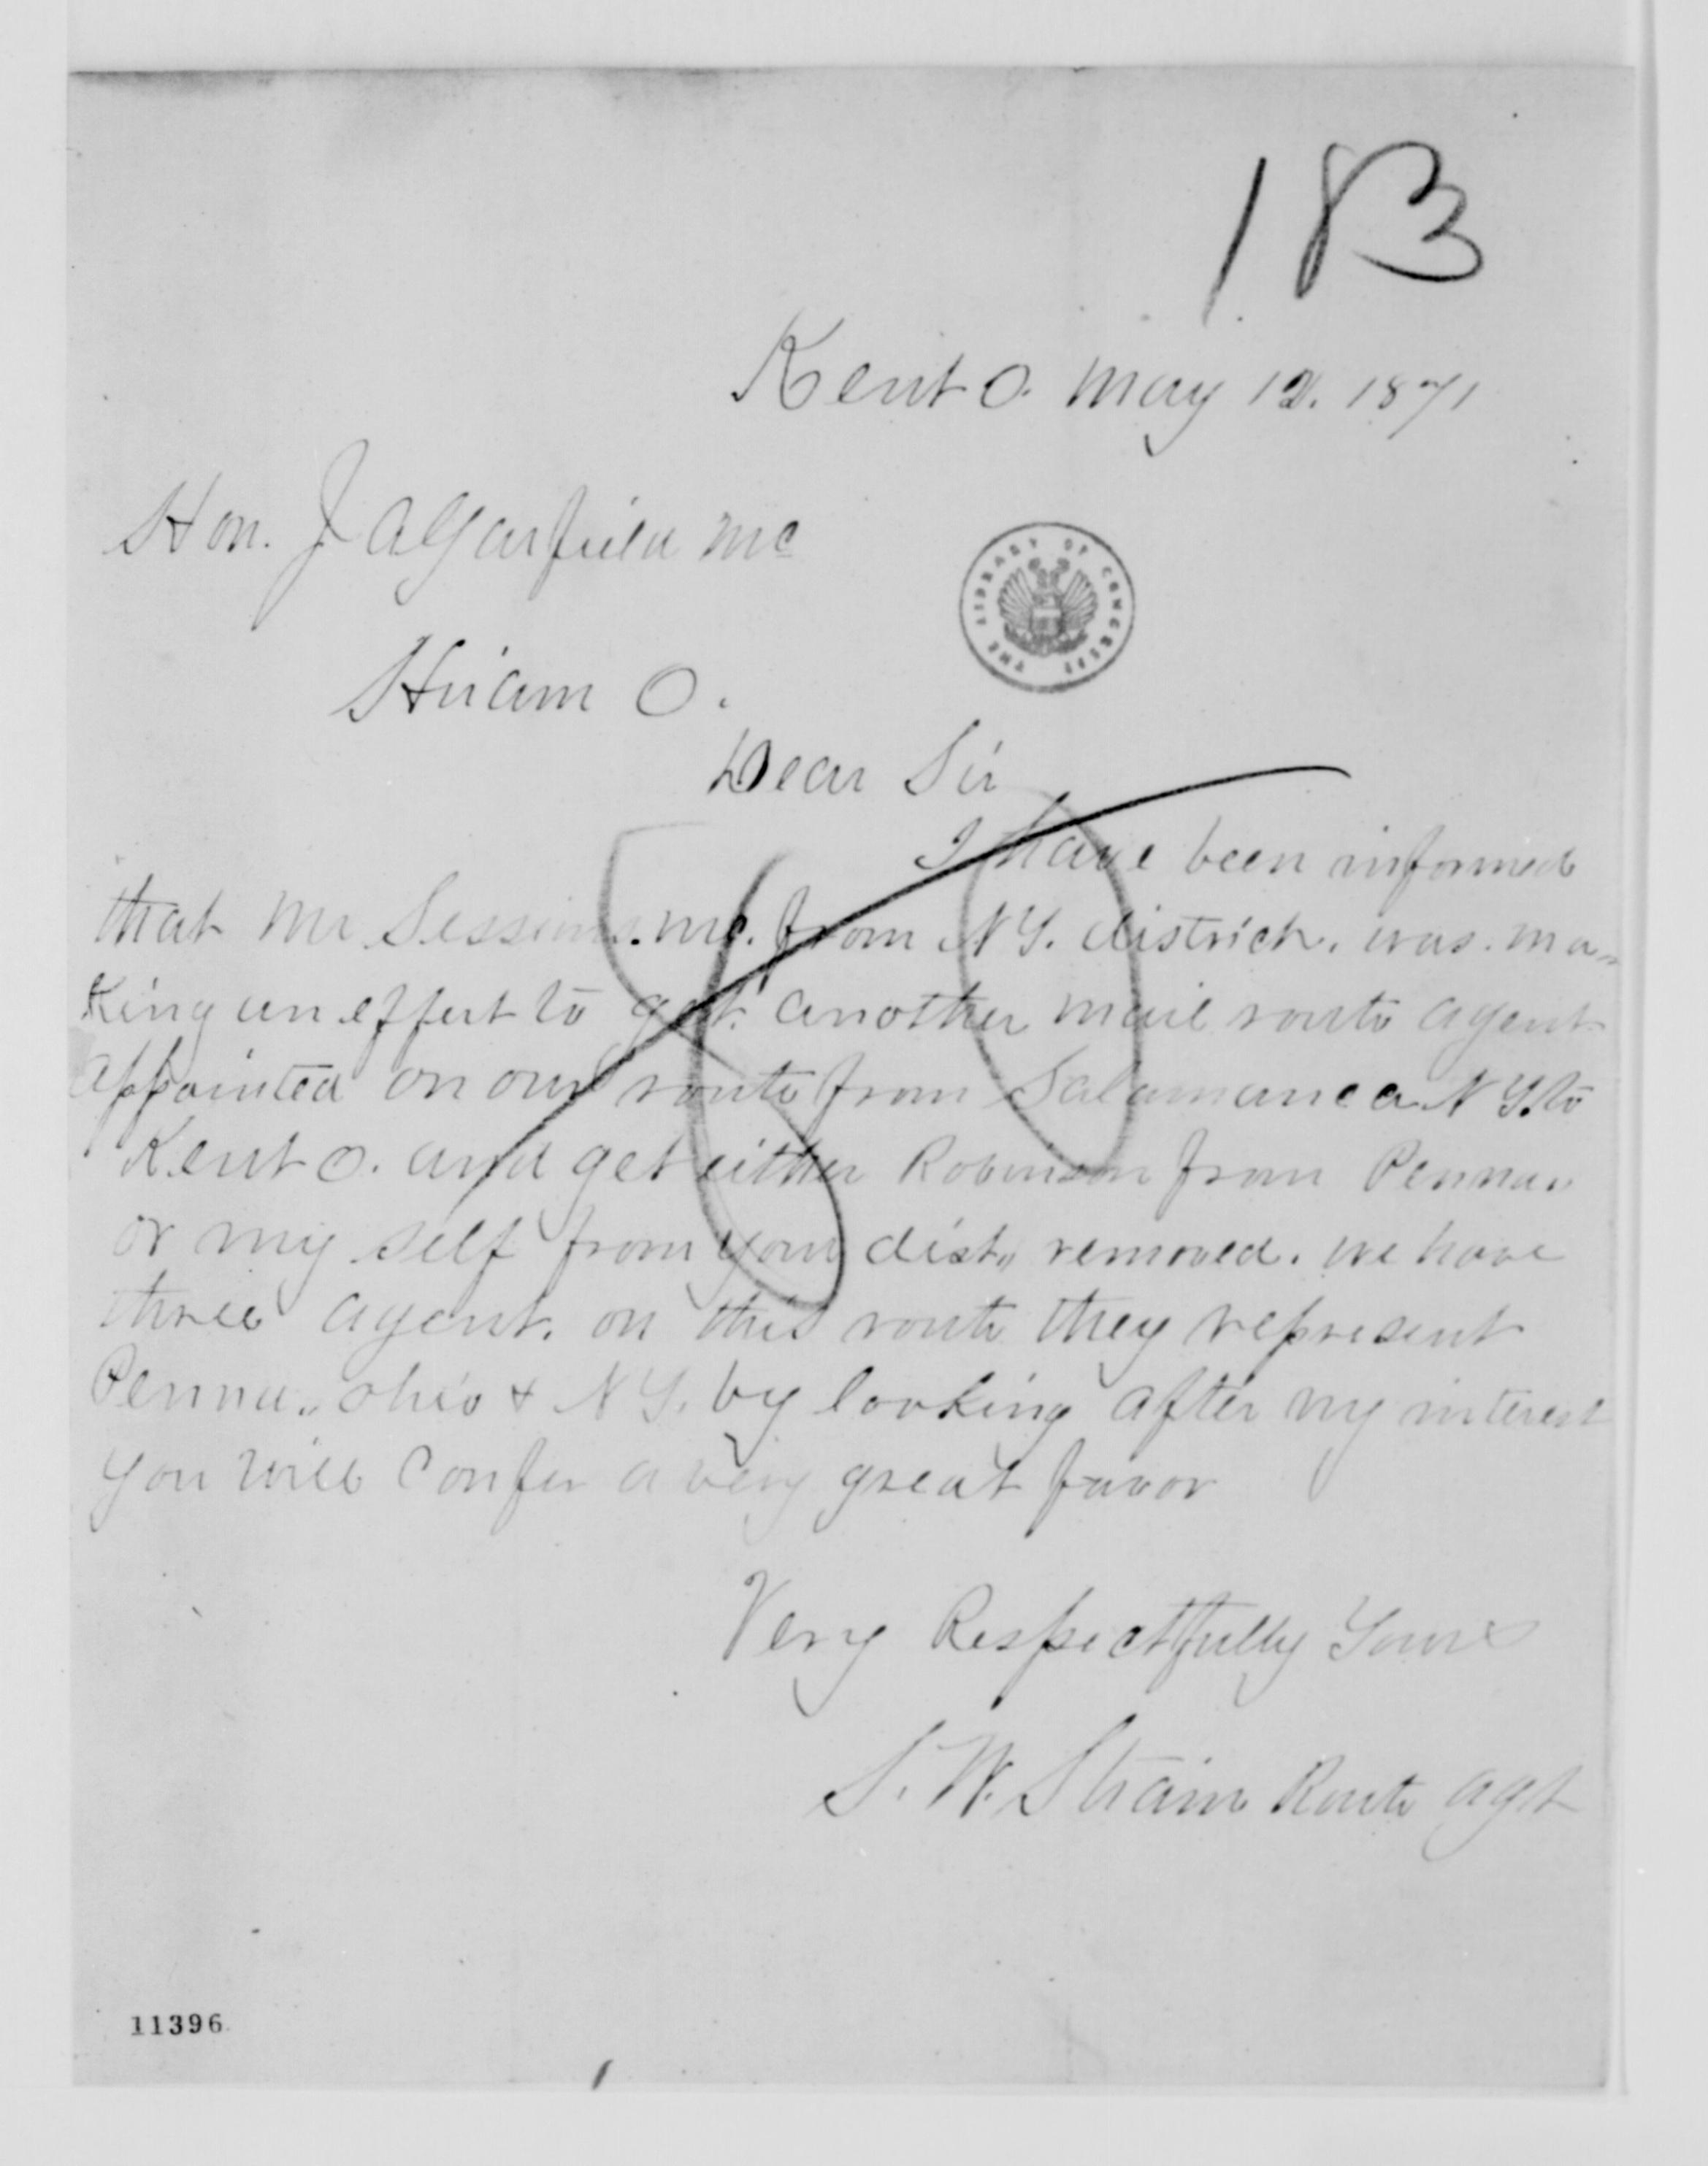 183
Kent O. May 12. 1871
Hon. J A Garfield MC
Hiram O.
THE LIBRARY OF CONGRESS
Dear Sir
I have been informed
that Mr Sessions. MC. from NY. district. was. ma-
king an effort to get another mail route agent
appointed on our route from Salamanca NY. to
Kent O. and get either Robinson from Penna.
or my self from your dist. removed. we have
three agent. on this route they represent
Penna.. Ohio & NY. by looking after my interest
you will confer a very great favor
Very Respectfully Yours
S. W. Strain Route agt
11396